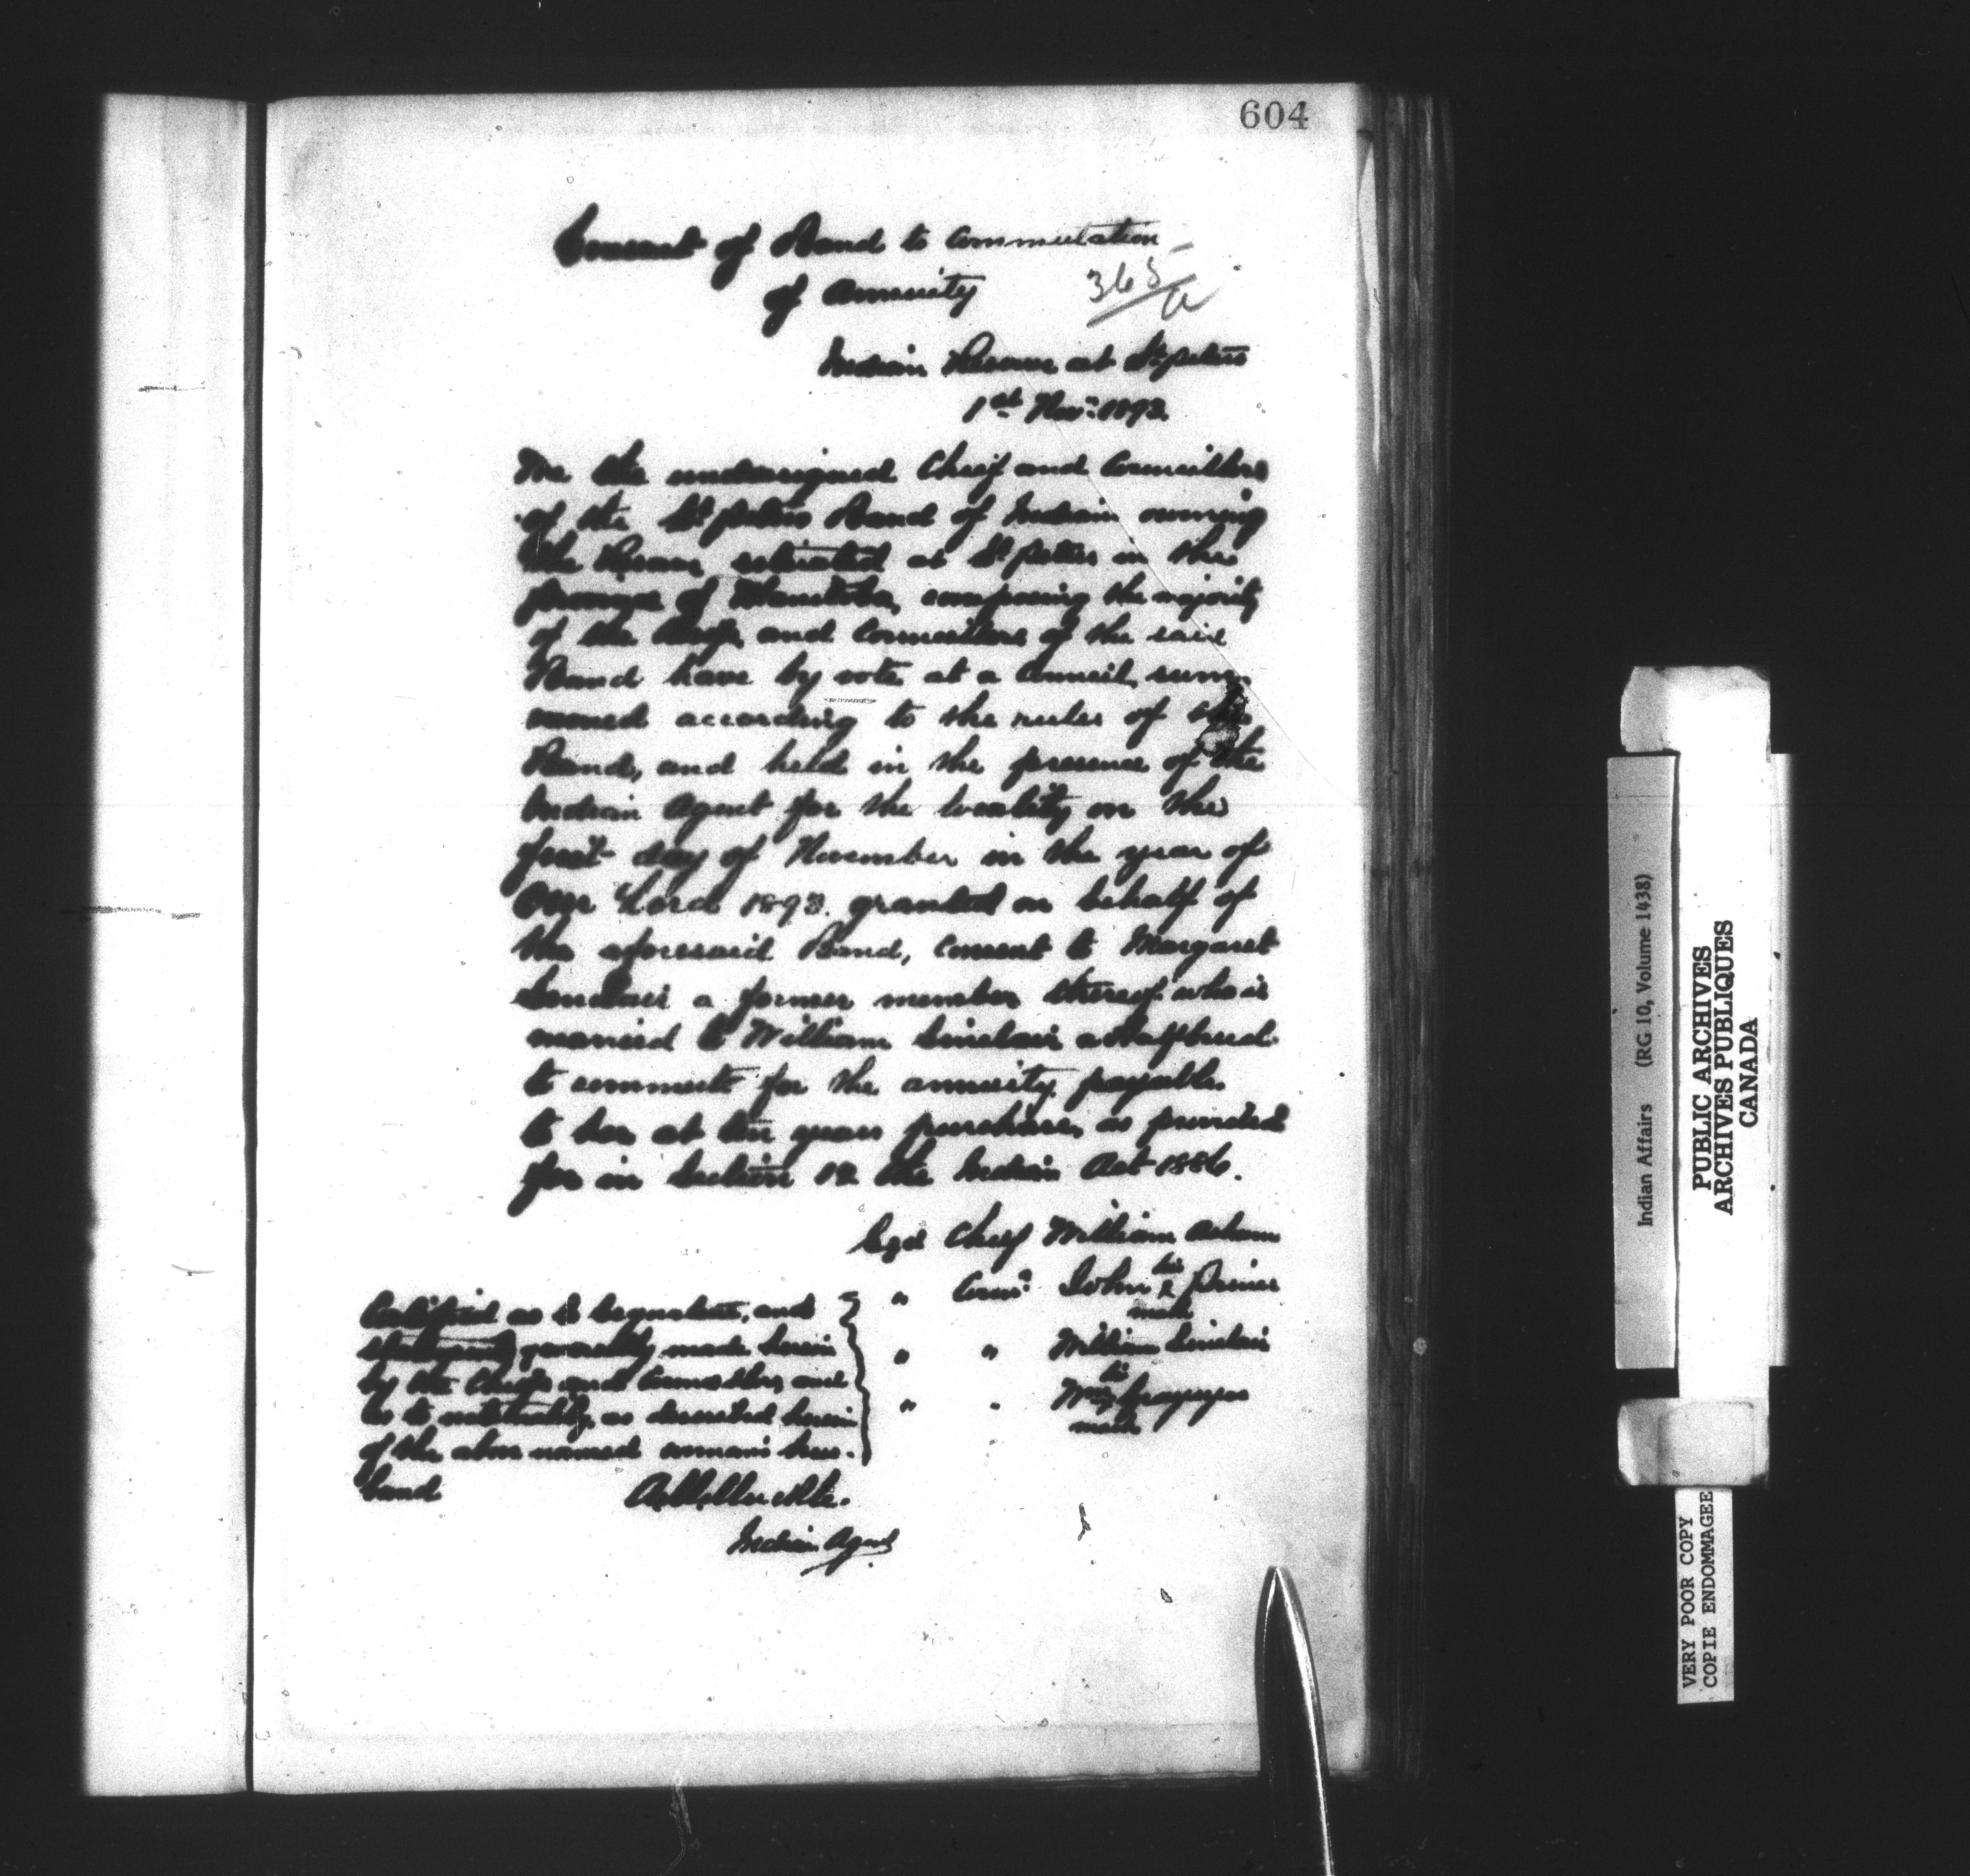 604
Consent of Band to Commutation
of Annuity
365/a
Indian Reserve at St. peters
1st Nov: 1893.
We the undersigned Chief and Councillors
of the St peters Band of Indian owning
the Reserve situated at St peters in the
province of Manitoba, composing the majority
of the Chiefs and Councillors of the said
Band have by vote at a Council, sum-
moned according to the rules of the
Band, and held in the presence of the
Indian Agent for the locality on the
first day of November in the year of
Our Lord 1893. granted on behalf of
the aforesaid Band, consent to Margaret
Sinclair a former member thereof who is
married to William Sinclair a Halfbreed
to commute for the annuity payable
to her at ten years purchase, as provided
for in Section 12 the Indian Act 1886.
Sgd Chief William Asham
his
" Coun: John x Prince
mark
" " William Sinclair
his
" " Wm x
mark
Certified as to signatures, and
statements generally made herein
by the Chiefs and Councillors, and
as to nationality as described herein
of the above named woman's hus-
band
Indian Agent
Indian Affairs (RG 10, Volume 1438)
PUBLIC ARCHIVES
ARCHIVES PUBLIQUES
CANADA
VERY POOR COPY
COPIE ENDOMMAGEE